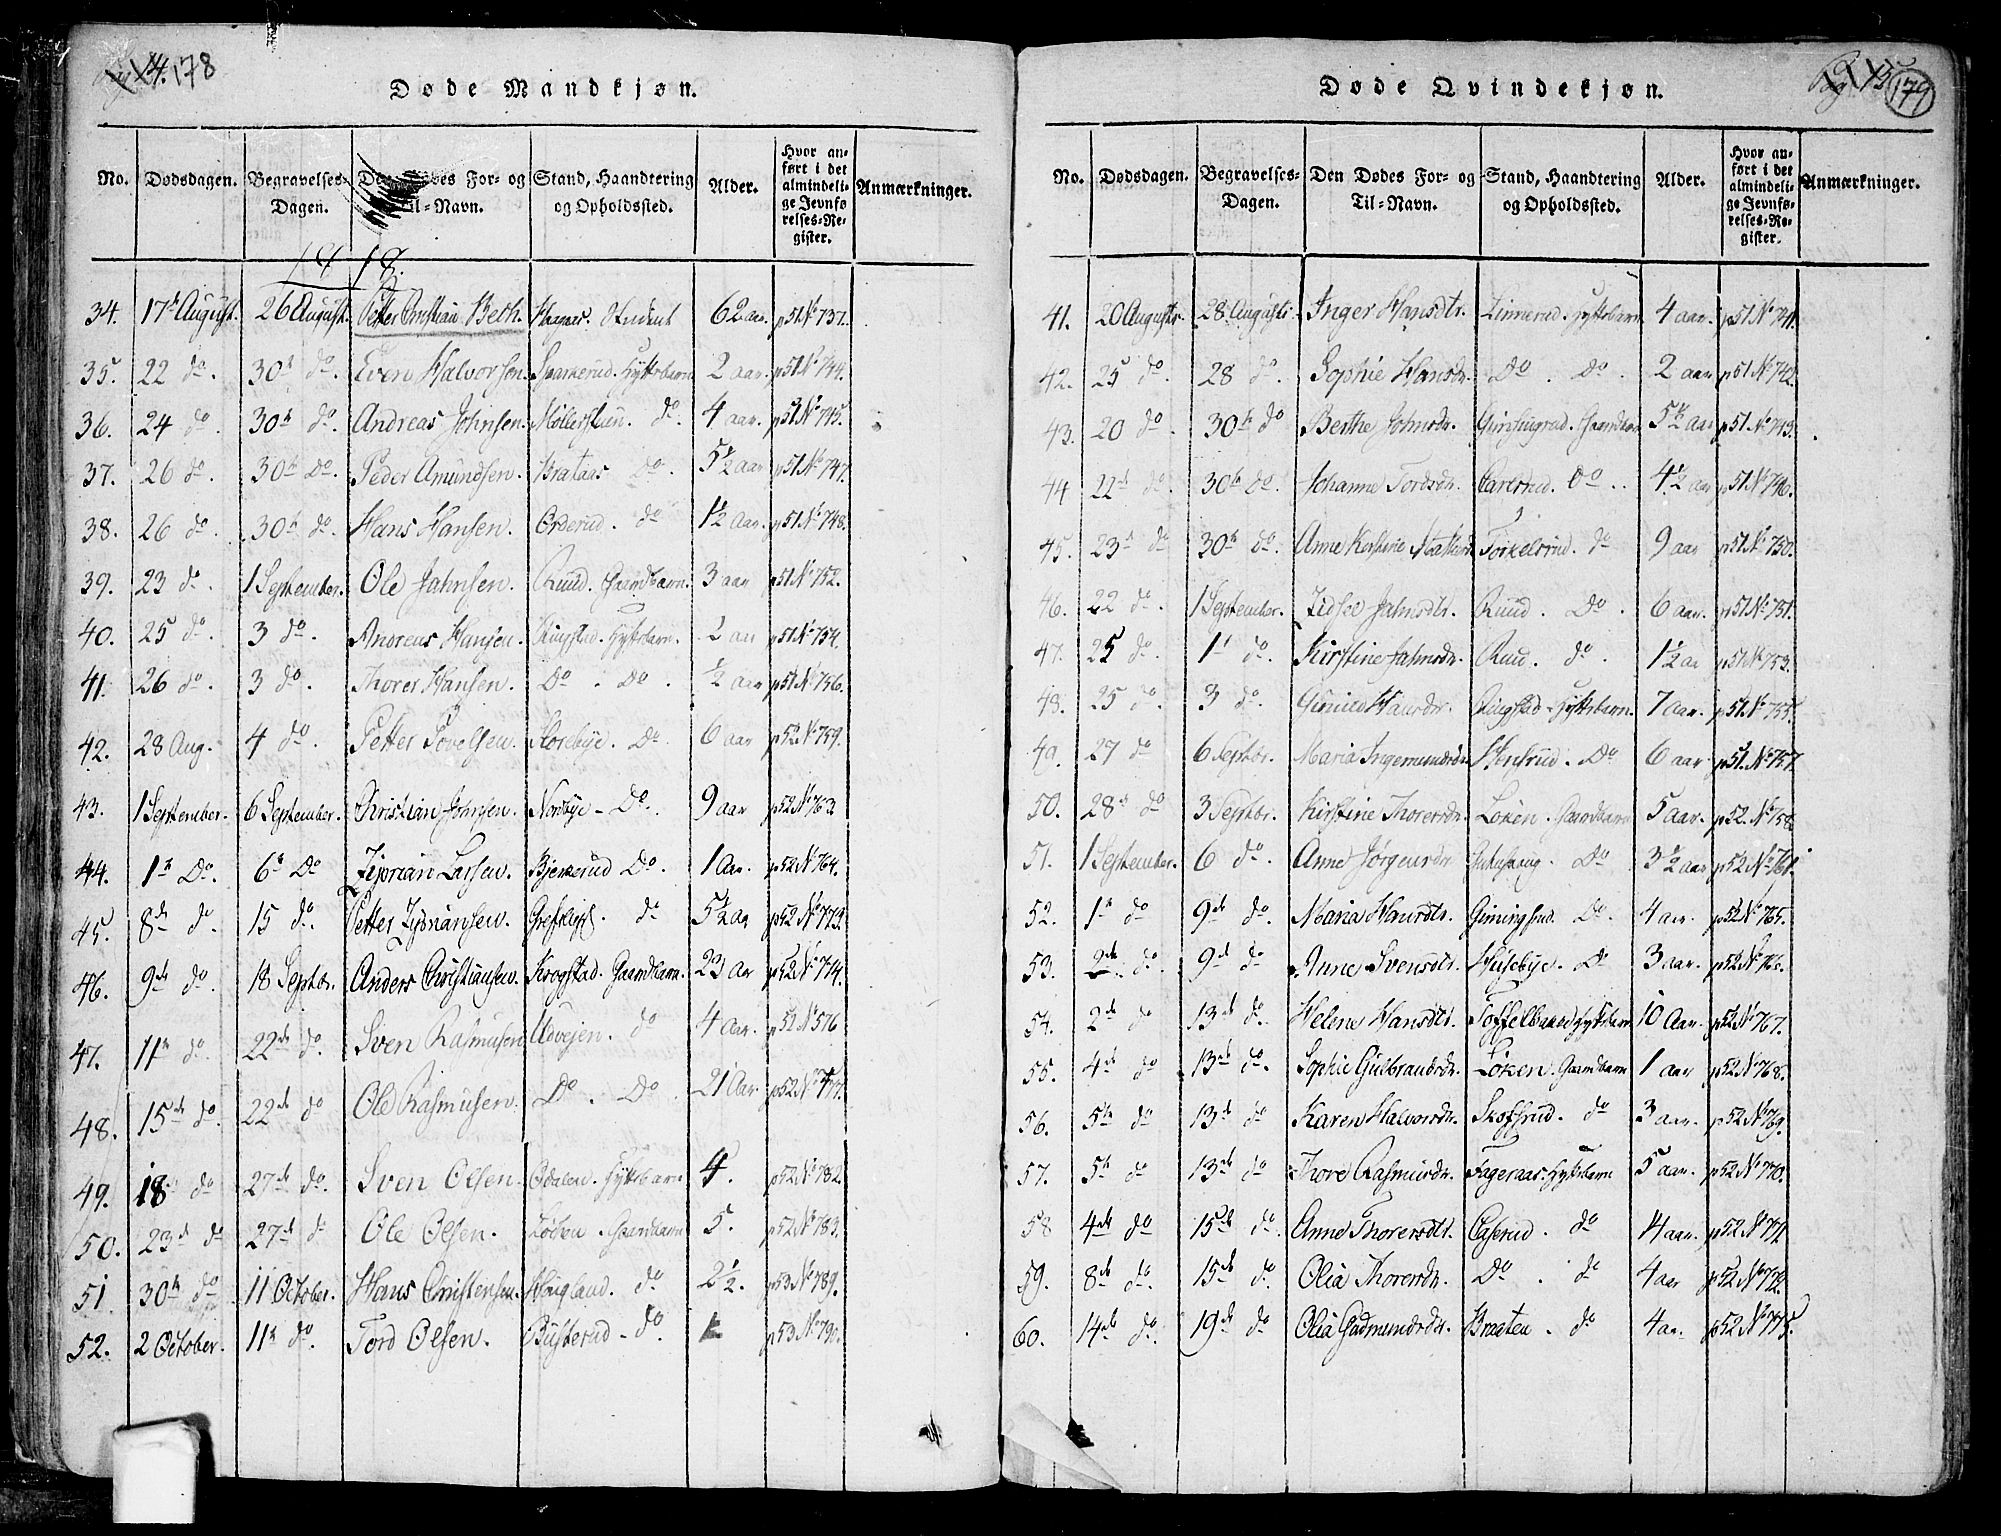 178
Døde Mandkjøn.
No. Dødsdagen. Begravelses-Dagen. Den Dødes For- og Til-Navn. Stand, Haandtering og Opholdssted. Alder. Hvor anført i det almindelige Jevnførelses-Register. Anmærkninger.
1818.
34. 17 August. 26 August. Petter Christian Beth. Student 62 aar. p51 No 737.
35. 22 do. 30 do. Even Halvorsen. Hyttebarn 2 aar. p51 No 744.
36. 24 do. 30 do. Andreas Johnsen. do. 4 aar. p51 No 745.
37. 26 do. 30 Do. Peder Amundsen. Brataas Do. 5 1/2 aar p51 No 747.
38. 26 do. 30 do. Hans Hansen. Orderud. do 1 1/2 aar. p51 No 748.
39. 23 do. 1 September. Ole Jahnsen. Ruud. Gaardbarn. 3 aar p51 No 752.
40. 25 do. 3 do. Andreas Hansen. Ringstad. Hyttebarn. 2 aar p51 No 754.
41. 26 do. 3 do. Thorer Hansen. Do. Do. 1/2 aar p51 No 756.
42. 28 Aug. 4 do. Petter Povelsen. Storebye. Do 6 aar p52 No 759.
43. 1 September. 6 September. Christian Johnsen. Nordbye - Do. 9 aar p52 No 763.
44. 1 Do. 6 Do Ziprian Larsen. Bjerkerud Do. 1 Aar. p52 No 764.
45. 8de do. 15 do. Petter do 5 1/2 aar p52 No 773.
46. 9de do. 18 Septbr. Anders Christiansen. Krogstad. Gaardbarn. 23 Aar p52 No 774.
47. 11 do. 22de do. Sven Rasmusen Udvejen. do 4 Aar. p52 No 576
48. 15de do. 22de do Ole Rasmusen. Do. Do. 21 Aar. p52 No 777.
49. 18 do 27de do. Sven Olsen. Odalen. Hyttebarn 4. p52 No 782.
50. 23de do 27de do Ole Olsen. Gaardbarn 5. p52 No 783.
51. 30 do 11 October. Hans Christensen. Haugland. do 2 1/2. p53 No 789.
52. 2 October. 11 do. Tord Olsen. Busterud - do. p53 No 790.
179
Døde Qvindekjøn.
No. Dødsdagen. Begravelses-Dagen. Den Dødes For- og Til-Navn. Stand, Haandtering og Opholdssted. Alder. Hvor anført i det almindelige Jevnførelses-Register. Anmærkninger.
41. 20 Augusti. 28 Augusti. Inger Hansdtr. Linnerud. Hyttebarn 4 aar. p51 No 741.
42. 25 do. 28 do. Sophie Hansdr. Do. Do. 2 aar p51 No 742.
43. 20 do. 30 do Berthe Johnsdr. 5 1/2 aar p51 No 743.
44 22de do. 30 Do. Johanne Tordsdr. Do. 4 1/2 aar p51 No 746.
45. 23 do 30 do. Anne Kirstine Torkelsrud. do 9 aar p51 No 750.
46. 22 do. 1 September. Zidsee Jahnsdtr. Ruud. Do. 6 aar. p51 No 751.
47. 25 do. 1 do. Kirstine Jahnsdr. Ruud. do. 1 1/2 aar p51 No 753.
48. 25 do. 3 do. Gunild Hansdr. Ringstad - Hyttebarn. 7 aar. p51 No 755.
49. 27 do 6 Septbr. Maria Ingemunsdr. Do 6 aar p51. No 757.
50. 28 do 3 Septbr. Kirstine Thorersdr. Loken. Gaardbarn 5 aar. p52. No 758
51. 1 September. 6 do. Anne Jorgensdr Do 3 1/2 aar p52 No 761.
52. 1 do 9de do. Maria Hansdtr. Do. 4 aar. p52 No 765.
53. 2de do. 9de do Anne Svensdtr. Husebye. Do 3 aar. p52 No 766.
54. 2de do 13de do. Helene Hansdtr. Hyttebarn 10 Aar. p52 No 767.
55. 4de do 13de do. Sophie Gulbransdr. Loken. Gaardbarn 1 aar p52 No 768.
56. 5te do 13de do Karen Halvorsdr. Skofsrud. do 3 aar. p52 No 769.
57. 5te do 13de do. Thore Rasmusdr. Fageraas. Hyttebarn 5 aar. p52 No 770.
58 4de do 15de do. Anne Thorersdtr. Caserud. do 4 aar. p52 No 771
59. 8de do. 15de do. Olia Thorersdr. Do. do 4 aar p52 No 772.
60. 14de do. 19de do Olia Gudmundsdr. Braaten. do 4 aar. p52 No 775.